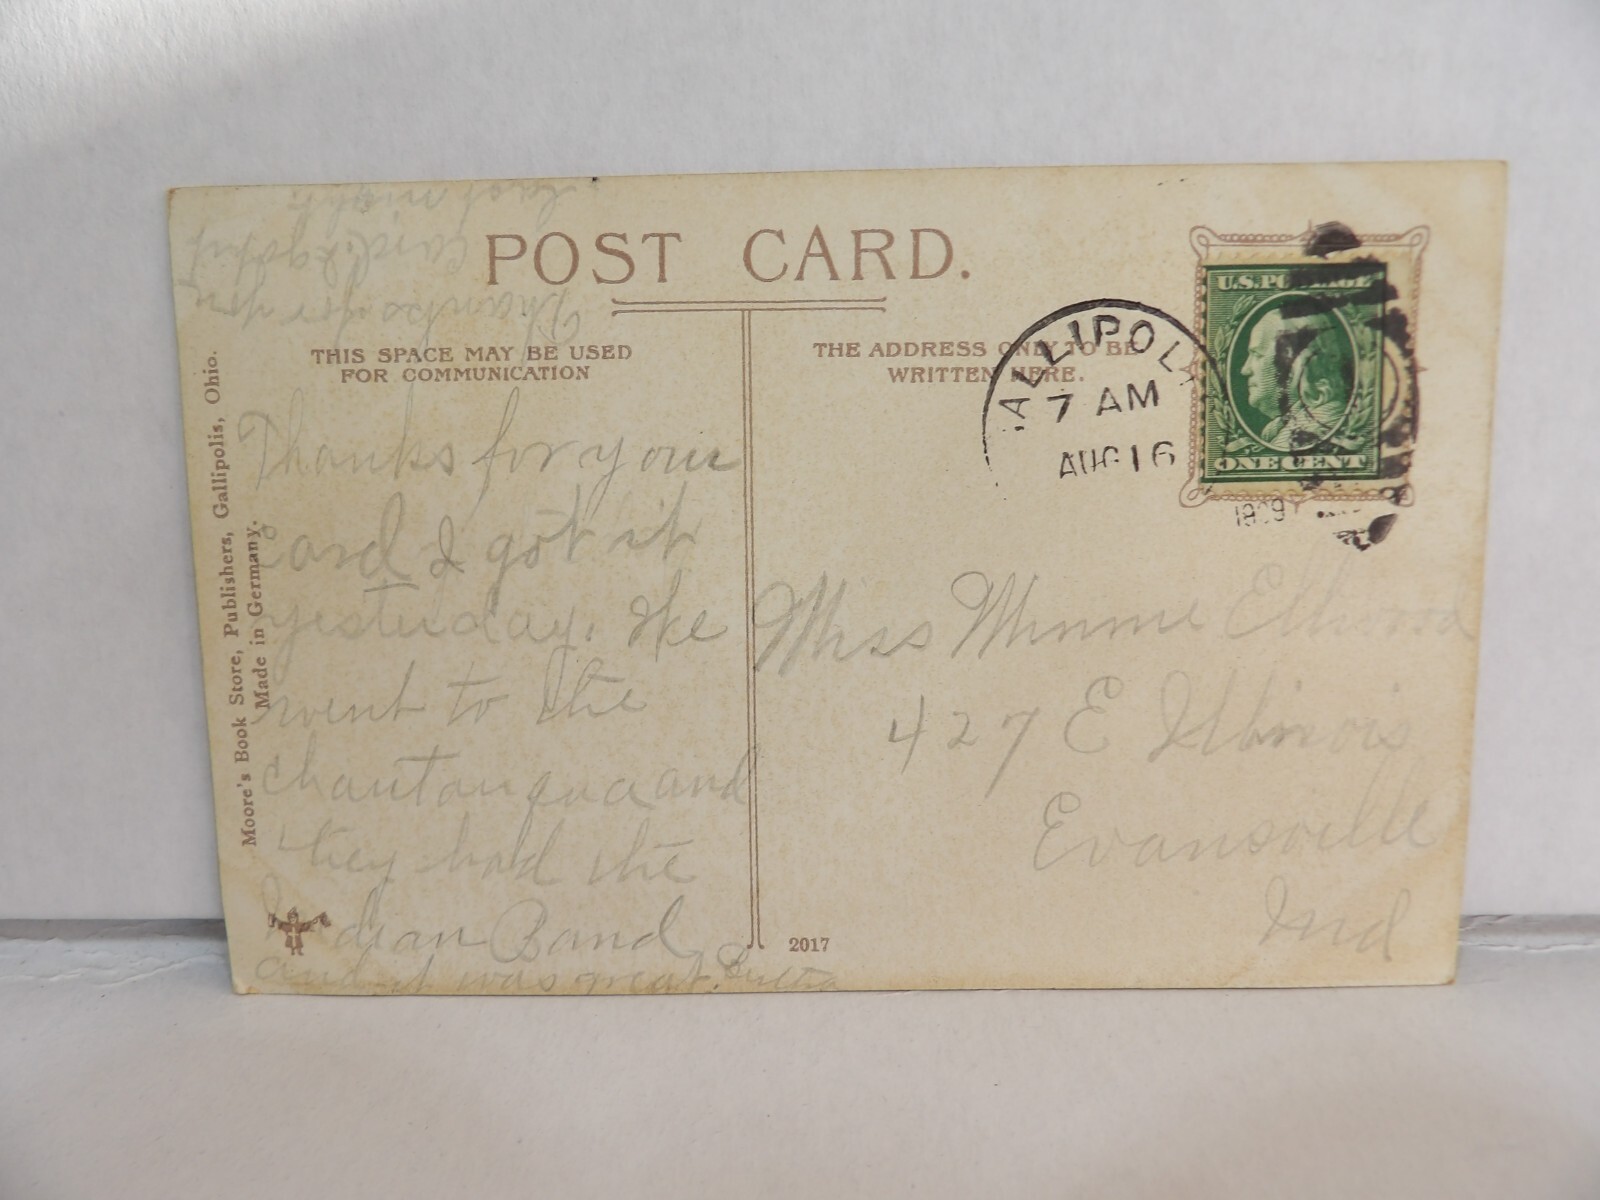 POST CARD.
THIS SPACE MAY BE USED
FOR COMMUNICATION
THE ADDRESS ONLY TO BE
WRITTEN HERE.
ALLIPOL
7 AM
AUG 16
1909
U.S. POSTAGE
ONE CENT
Moore's Book Store, Publishers, Gallipolis, Ohio.
Made in Germany.
Thanks for your
card I got it
yesterday. We
went to the
chautauqua and
they had the
Indian Band
and it was great.
Thanks for you
card. I got it
last night.
Miss Minnie Ellwood
427 E Illinois
Evansville
Ind
2017